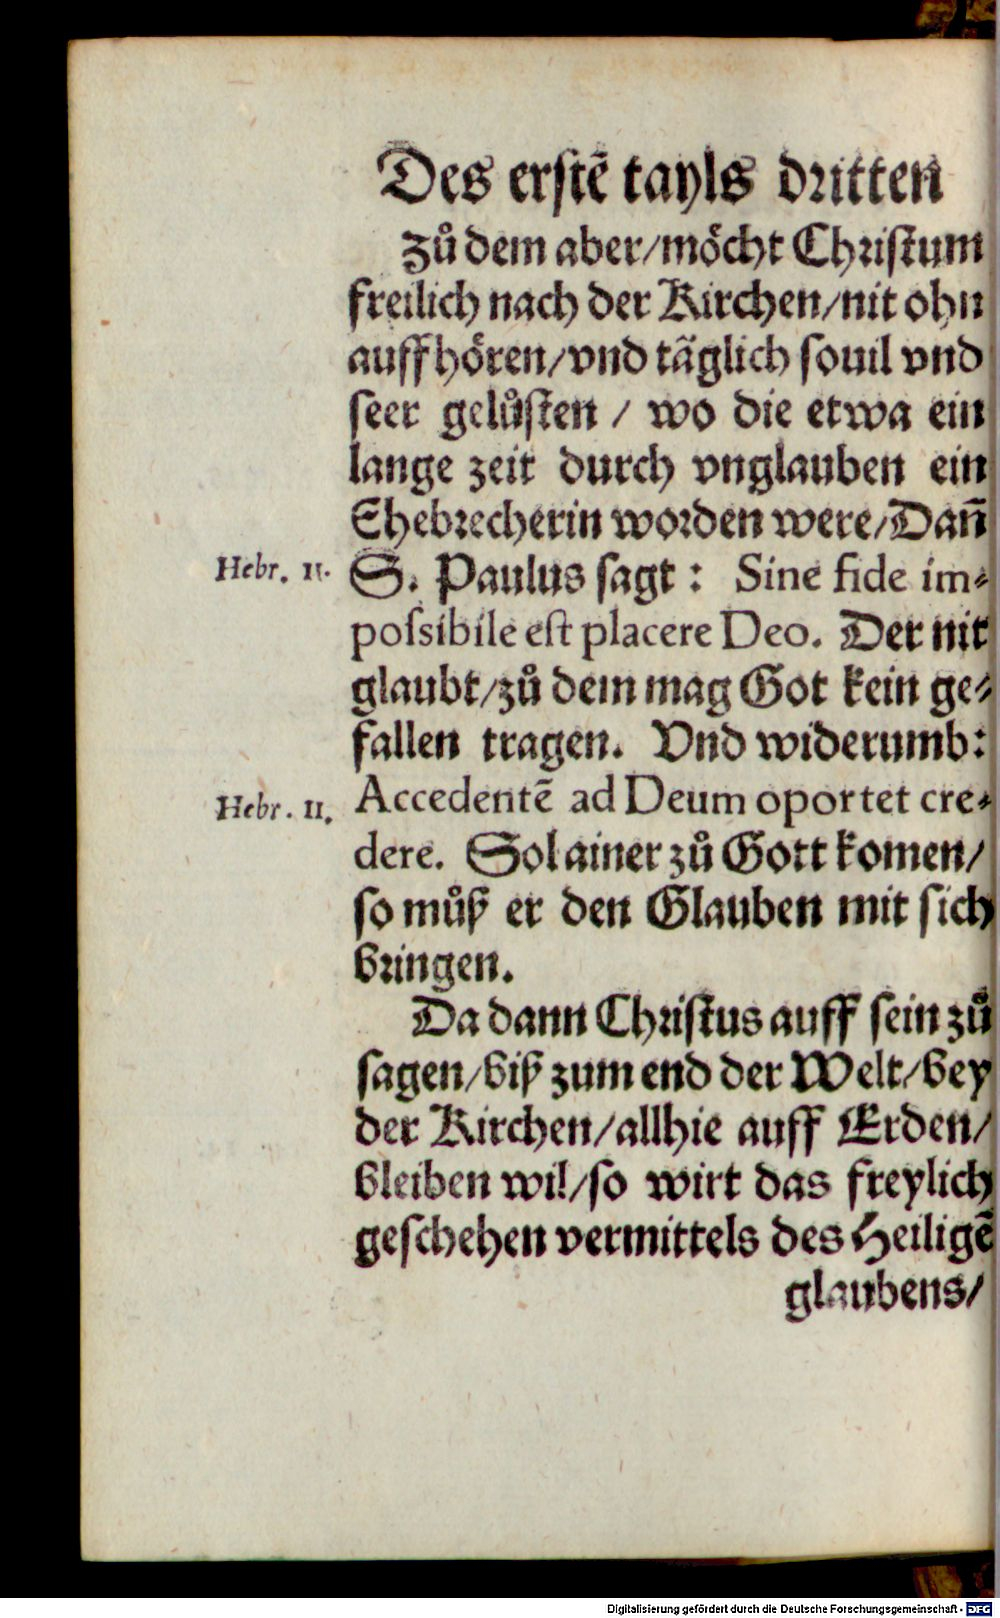 Des erstē tayls dritten
Zů dem aber/möcht Christum
freilich nach der Kirchen/nit ohn
auffhören/vnd täglich souil vnd
seer gelůsten / wo die etwa ein
lange zeit durch vnglauben ein
Ehebrecherin worden were/Dañ
Hebr. 11. S. Paulus sagt : Sine fide im-
possibile est placere Deo. Der nit
glaubt/zů dem mag Got kein ge-
fallen tragen. Vnd widerumb:
Hebr. 11. Accedentē ad Deum oportet cre-
dere. Sol ainer zů Gott komen/
so můß er den Glauben mit sich
bringen.
Da dann Christus auff sein zů
sagen/biß zum end der Welt/bey
der Kirchen/allhie auff Erden/
bleiben wil/so wirt das freylich
geschehen vermittels des Heiligē
glaubens/
Digitalisierung gefördert durch die Deutsche Forschungsgemeinschaft - DFG